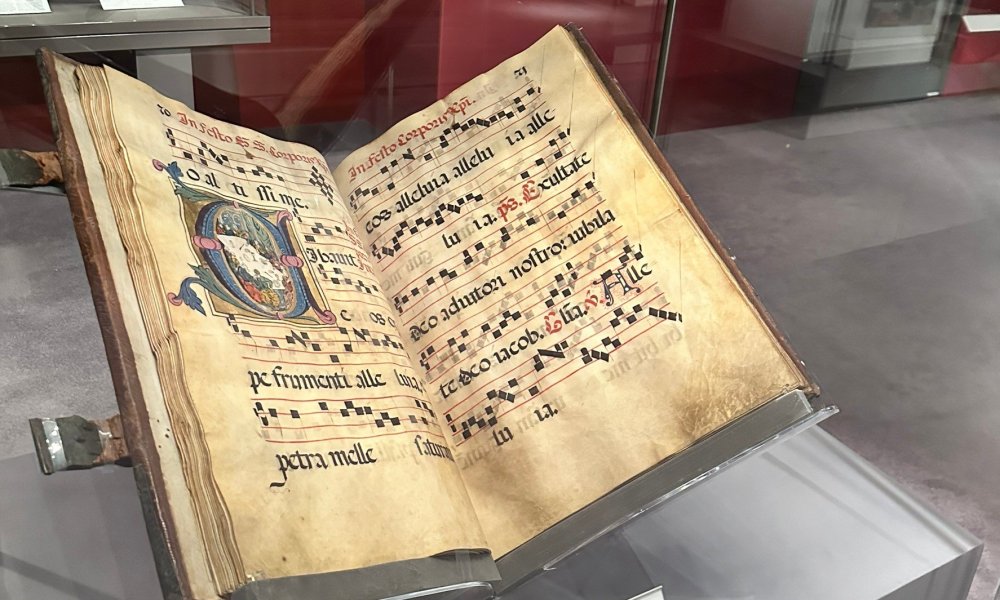 In festo S S. Corporis
o al ti ssi me.
Ibauit
e os
pe frumenti alle luia.
petra melle saturau
In festo Corporis Xpi.
eos alleluia allelu ia alle
lu ia. ps. Exultate
deo adiutori nostro: iubila
te deo iacob. Glia. V. Alle
lu ia.